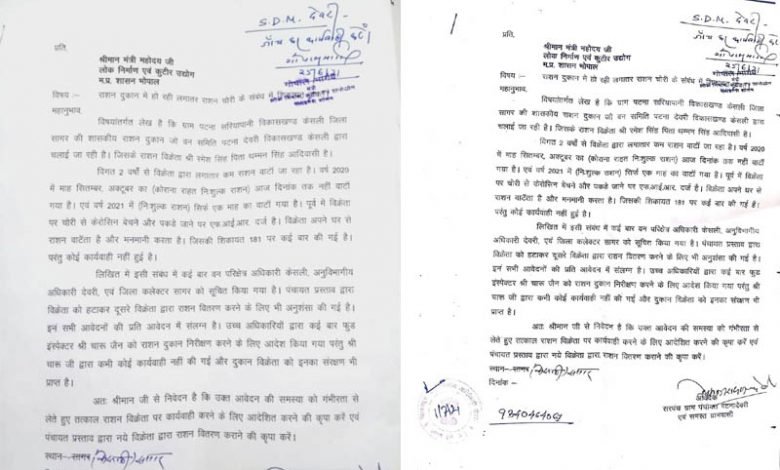 S.D.M. देवरी -
जाँच कर कार्यवाही करें
प्रति,
श्रीमान मंत्री महोदय जी
लोक निर्माण एवं कुटीर उद्योग
म.प्र. शासन भोपाल
विषय :- राशन दुकान में हो रही लगातार राशन चोरी के संबंध में
महानुभाव,
विषयांतर्गत लेख है कि ग्राम पटना सरियापानी विकासखण्ड केसली जिला
सागर की शासकीय राशन दुकान जो वन समिति पटना देवरी विकासखण्ड केसली द्वारा
चलाई जा रही है। जिसके राशन विक्रेता श्री रमेश सिंह पिता थम्मन सिंह आदिवासी है।
विगट 2 वर्षों से विक्रेता द्वारा लगातार कम राशन वाटॉ जा रहा है। वर्ष 2020
में माह सितम्बर, अक्टूबर का (कोराना राहत निःशुल्क राशन) आज दिनांक तक नहीं वाटॉ
गया है। एवं वर्ष 2021 में (निःशुल्क राशन) सिर्फ एक माह का वाटॉ गया है। पूर्व में विक्रेता
पर चोरी से केरोसिन बेचने और पकडे जाने पर एफ.आई.आर. दर्ज है। विक्रेता अपने घर से
राशन वाटॅता है और मनमानी करता है। जिसकी शिकायत 181 पर कई बार की गई है।
परंतु कोई कार्यवाही नहीं हुई है।
लिखित में इसी संबंध में कई बार वन परिक्षेत्र अधिकारी केसली, अनुविभागीय
अधिकारी देवरी, एवं जिला कलेक्टर सागर को सूचित किया गया है। पंचायत प्रस्ताव द्वारा
विक्रेता को हटाकर दूसरे विक्रेता द्वारा राशन वितरण करने के लिए भी अनुशंसा की गई है।
इन सभी आवेदनों की प्रति आवेदन में संलग्न है। उच्च अधिकारियों द्वारा कई बार फूड
इंस्पेक्टर श्री चारू जैन को राशन दुकान निरीक्षण करने के लिए आदेश किया गया परंतु श्री
चारू जी द्वारा कभी कोई कार्यवाही नहीं की गई और दुकान विक्रेता को इनका संरक्षण भी
प्राप्त है।
अतः श्रीमान जी से निवेदन है कि उक्त आवेदन की समस्या को गंभीरता से
लेते हुए तत्काल राशन विक्रेता पर कार्यवाही करने के लिए आदेशित करने की कृपा करें एवं
पंचायत प्रस्ताव द्वारा नये विक्रेता द्वारा राशन वितरण कराने की कृपा करें।
स्थान:- सागर
S.D.M. देवरी -
जाँच कर कार्यवाही करें
प्रति,
श्रीमान मंत्री महोदय जी
लोक निर्माण एवं कुटीर उद्योग
म.प्र. शासन भोपाल
विषय :- राशन दुकान में हो रही लगातार राशन चोरी के संबंध में
महानुभाव,
विषयांतर्गत लेख है कि ग्राम पटना सरियापानी विकासखण्ड केसली जिला
सागर की शासकीय राशन दुकान जो वन समिति पटना देवरी विकासखण्ड केसली द्वारा
चलाई जा रही है। जिसके राशन विक्रेता श्री रमेश सिंह पिता थम्मन सिंह आदिवासी है।
विगट 2 वर्षों से विक्रेता द्वारा लगातार कम राशन वाटॉ जा रहा है। वर्ष 2020
में माह सितम्बर, अक्टूबर का (कोराना राहत निःशुल्क राशन) आज दिनांक तक नहीं वाटॉ
गया है। एवं वर्ष 2021 में (निःशुल्क राशन) सिर्फ एक माह का वाटॉ गया है। पूर्व में विक्रेता
पर चोरी से केरोसिन बेचने और पकडे जाने पर एफ.आई.आर. दर्ज है। विक्रेता अपने घर से
राशन वाटॅता है और मनमानी करता है। जिसकी शिकायत 181 पर कई बार की गई है।
परंतु कोई कार्यवाही नहीं हुई है।
लिखित में इसी संबंध में कई बार वन परिक्षेत्र अधिकारी केसली, अनुविभागीय
अधिकारी देवरी, एवं जिला कलेक्टर सागर को सूचित किया गया है। पंचायत प्रस्ताव द्वारा
विक्रेता को हटाकर दूसरे विक्रेता द्वारा राशन वितरण करने के लिए भी अनुशंसा की गई है।
इन सभी आवेदनों की प्रति आवेदन में संलग्न है। उच्च अधिकारियों द्वारा कई बार फूड
इंस्पेक्टर श्री चारू जैन को राशन दुकान निरीक्षण करने के लिए आदेश किया गया परंतु श्री
चारू जी द्वारा कभी कोई कार्यवाही नहीं की गई और दुकान विक्रेता को इनका संरक्षण भी
प्राप्त है।
अतः श्रीमान जी से निवेदन है कि उक्त आवेदन की समस्या को गंभीरता से
लेते हुए तत्काल राशन विक्रेता पर कार्यवाही करने के लिए आदेशित करने की कृपा करें एवं
पंचायत प्रस्ताव द्वारा नये विक्रेता द्वारा राशन वितरण कराने की कृपा करें।
स्थान:- सागर
दिनांक :-
आवेदक
सरपंच ग्राम पंचायत पटनादेवरी
एवं समस्त ग्रामवासी